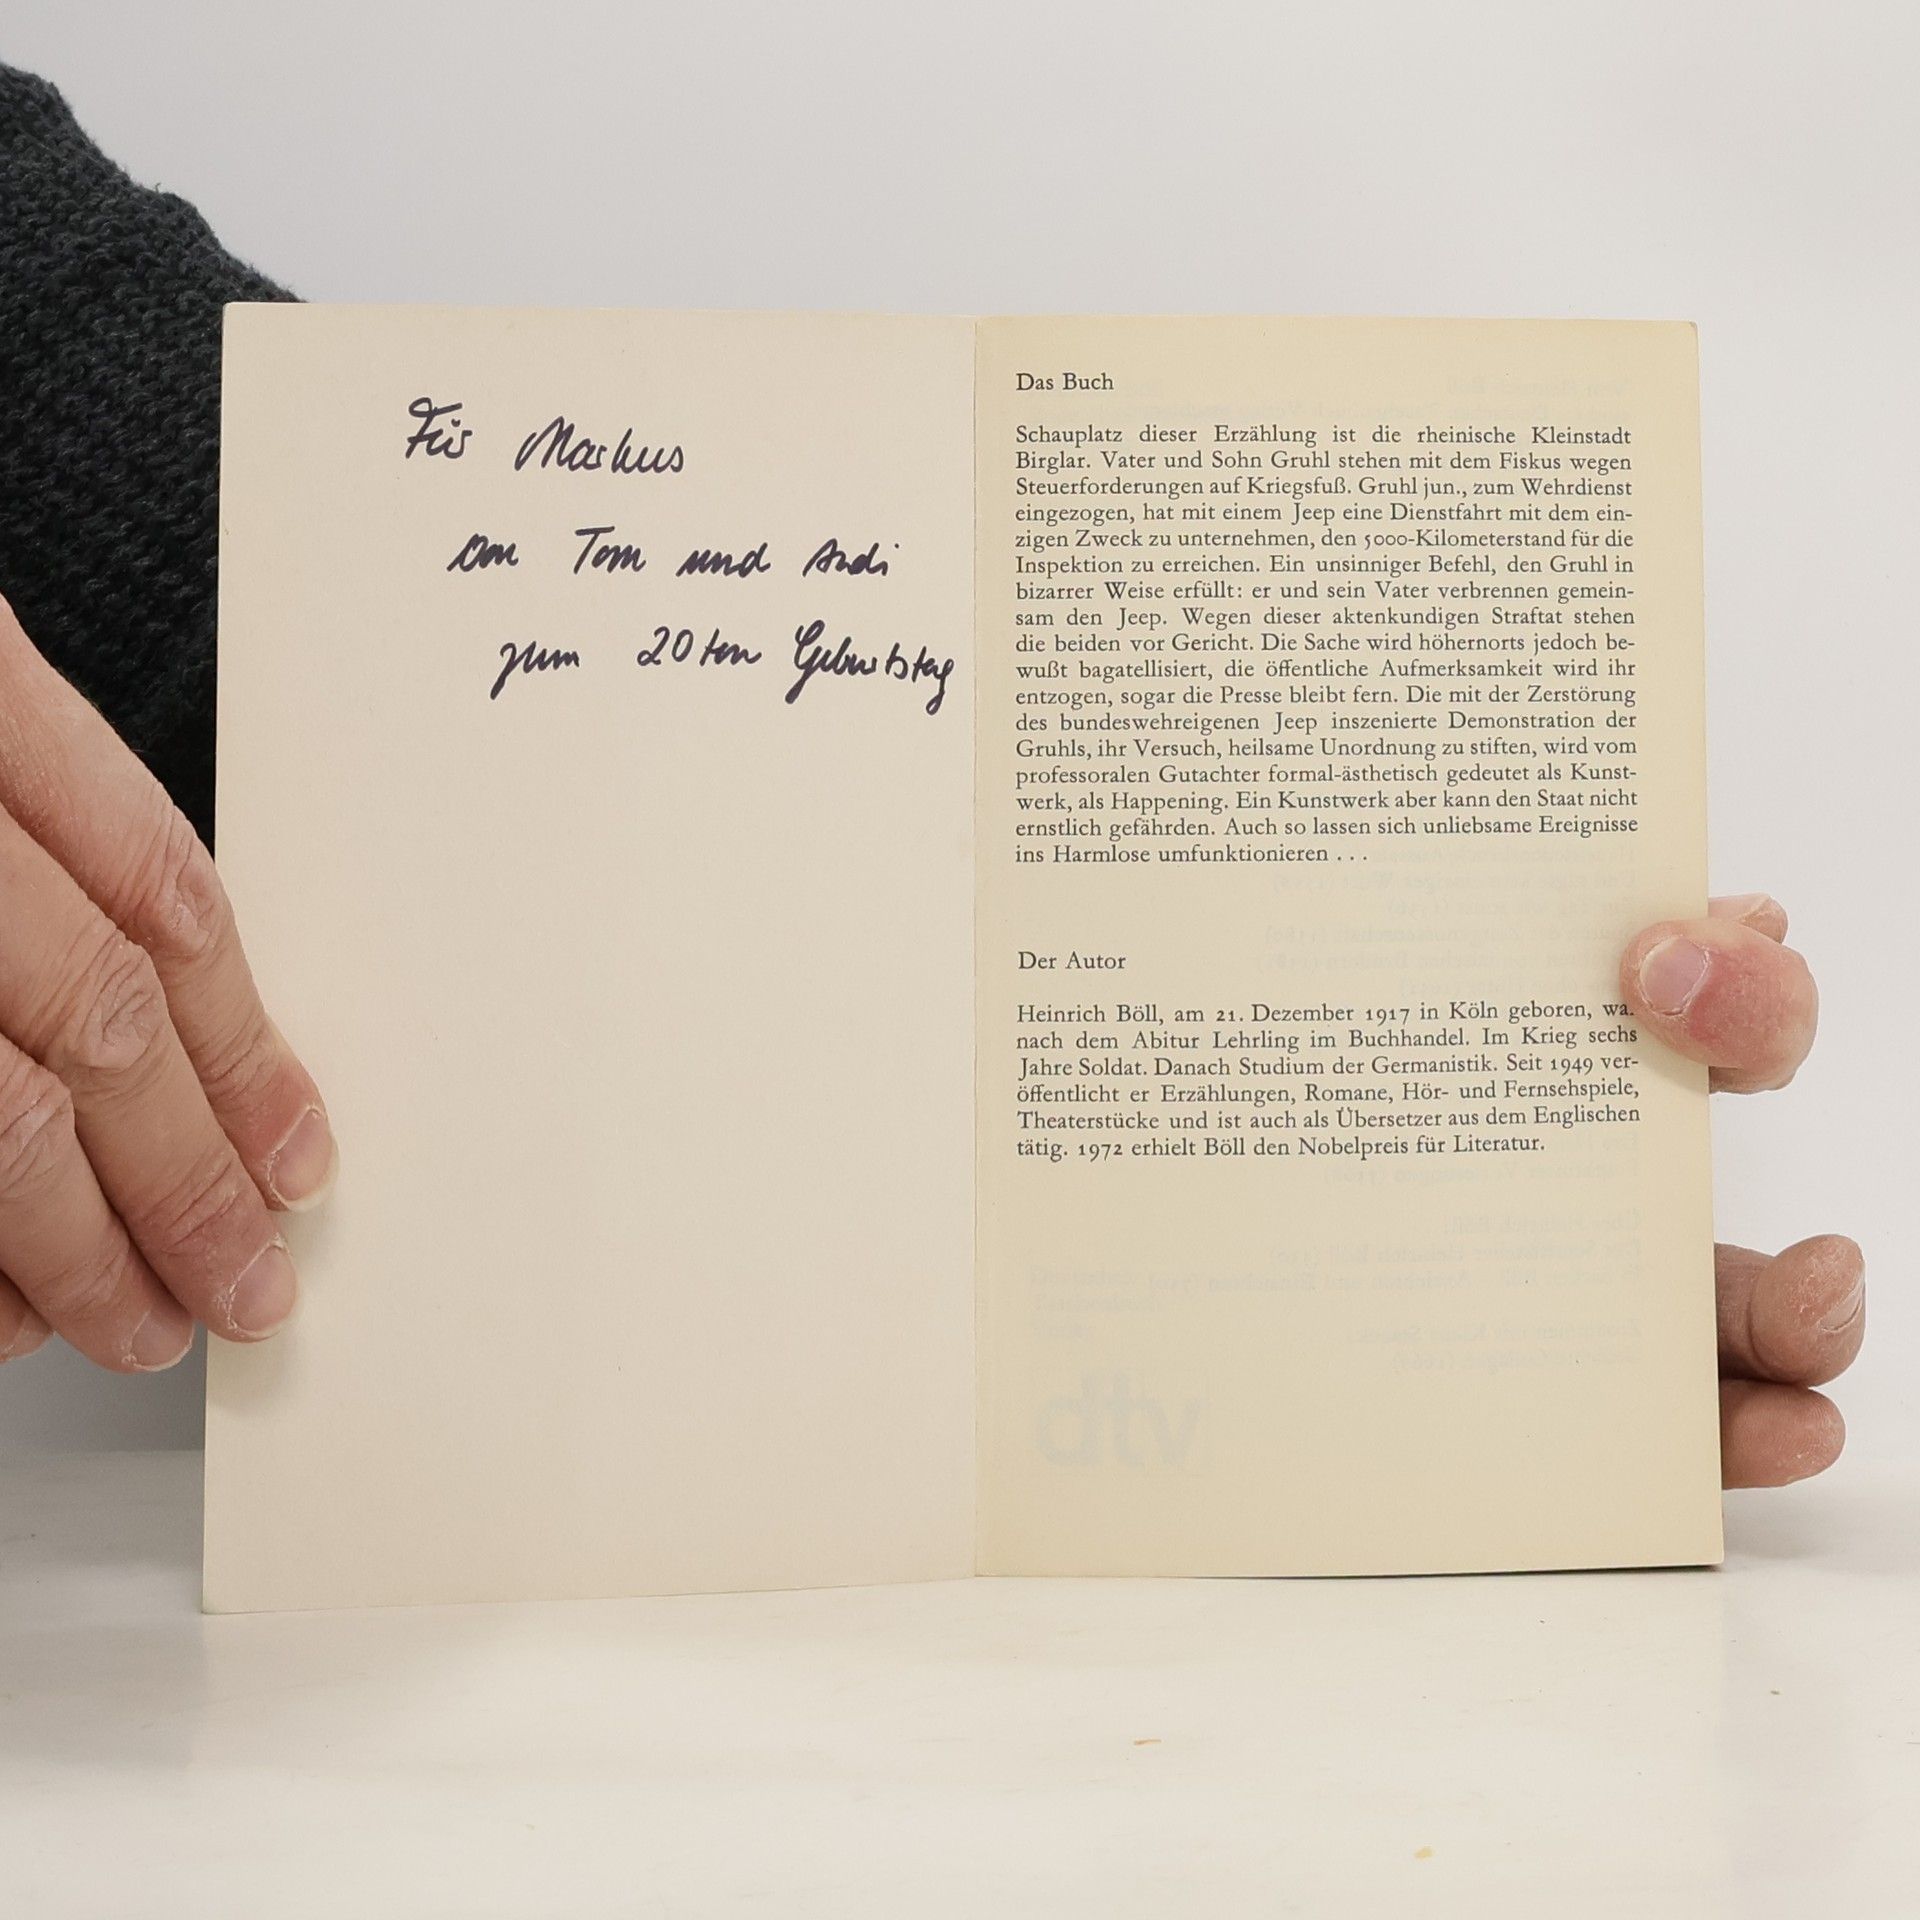 Für Markus
von Tom und Andi
zum 20ten Geburtstag
Das Buch
Schauplatz dieser Erzählung ist die rheinische Kleinstadt
Birglar. Vater und Sohn Gruhl stehen mit dem Fiskus wegen
Steuerforderungen auf Kriegsfuß. Gruhl jun., zum Wehrdienst
eingezogen, hat mit einem Jeep eine Dienstfahrt mit dem ein-
zigen Zweck zu unternehmen, den 5000-Kilometerstand für die
Inspektion zu erreichen. Ein unsinniger Befehl, den Gruhl in
bizarrer Weise erfüllt: er und sein Vater verbrennen gemein-
sam den Jeep. Wegen dieser aktenkundigen Straftat stehen
die beiden vor Gericht. Die Sache wird höhernorts jedoch be-
wußt bagatellisiert, die öffentliche Aufmerksamkeit wird ihr
entzogen, sogar die Presse bleibt fern. Die mit der Zerstörung
des bundeswehreigenen Jeep inszenierte Demonstration der
Gruhls, ihr Versuch, heilsame Unordnung zu stiften, wird vom
professoralen Gutachter formal-ästhetisch gedeutet als Kunst-
werk, als Happening. Ein Kunstwerk aber kann den Staat nicht
ernstlich gefährden. Auch so lassen sich unliebsame Ereignisse
ins Harmlose umfunktionieren . . .
Der Autor
Heinrich Böll, am 21. Dezember 1917 in Köln geboren,
nach dem Abitur Lehrling im Buchhandel. Im Krieg sechs
Jahre Soldat. Danach Studium der Germanistik. Seit 1949 ver-
öffentlicht er Erzählungen, Romane, Hör- und Fernsehspiele,
Theaterstücke und ist auch als Übersetzer aus dem Englischen
tätig. 1972 erhielt Böll den Nobelpreis für Literatur.
dtv